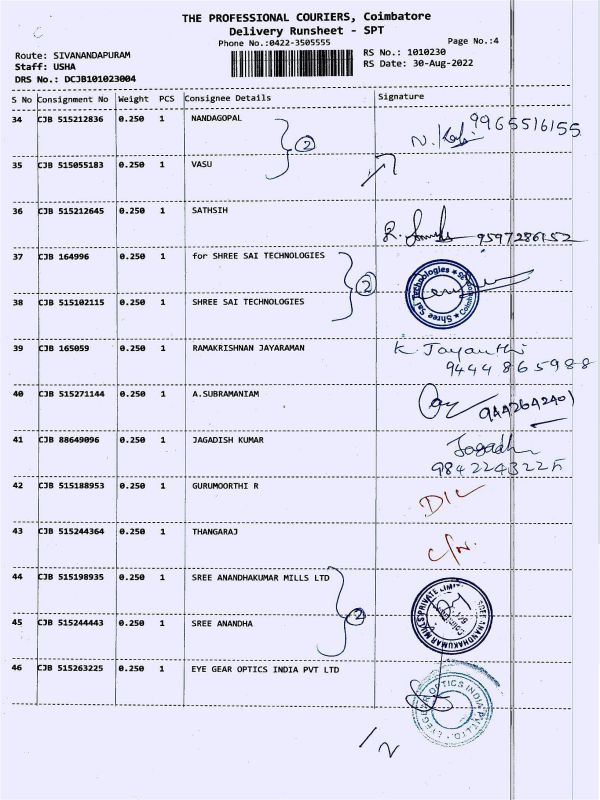 THE PROFESSIONAL COURIERS, Coimbatore
Delivery Runsheet - SPT
Phone No.:0422-3505555
Page No.:4
Route: SIVANANDAPURAM
RS No.: 1010230
Staff: USHA
RS Date: 30-Aug-2022
DRS No.: DCJB101023004
S No Consignment No Weight PCS Consignee Details Signature
34 CJB 515212836 0.250 1 NANDAGOPAL 9965516155
2
35 CJB 515055183 0.250 1 VASU
36 CJB 515212645 0.250 1 SATHSIH
9597286152
37 CJB 164996 0.250 1 for SHREE SAI TECHNOLOGIES
2
Shree Sai Technologies
38 CJB 515102115 0.250 1 SHREE SAI TECHNOLOGIES
39 CJB 165059 0.250 1 RAMAKRISHNAN JAYARAMAN K. Jayanthi
9444865988
40 CJB 515271144 0.250 1 A.SUBRAMANIAM
9442642401
41 CJB 88649096 0.250 1 JAGADISH KUMAR
42 CJB 515188953 0.250 1 GURUMOORTHI R D/L
43 CJB 515244364 0.250 1 THANGARAJ
44 CJB 515198935 0.250 1 SREE ANANDHAKUMAR MILLS LTD
2
SREE ANANDHAKUMAR MILLS PRIVATE LIMITED
45 CJB 515244443 0.250 1 SREE ANANDHA
46 CJB 515263225 0.250 1 EYE GEAR OPTICS INDIA PVT LTD
EYEGEAR OPTICS INDIA PVT. LTD.